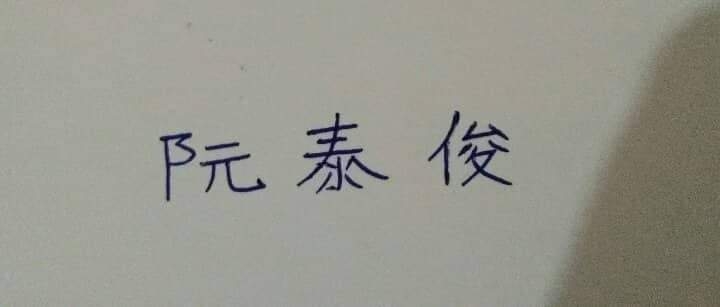 阮泰俊